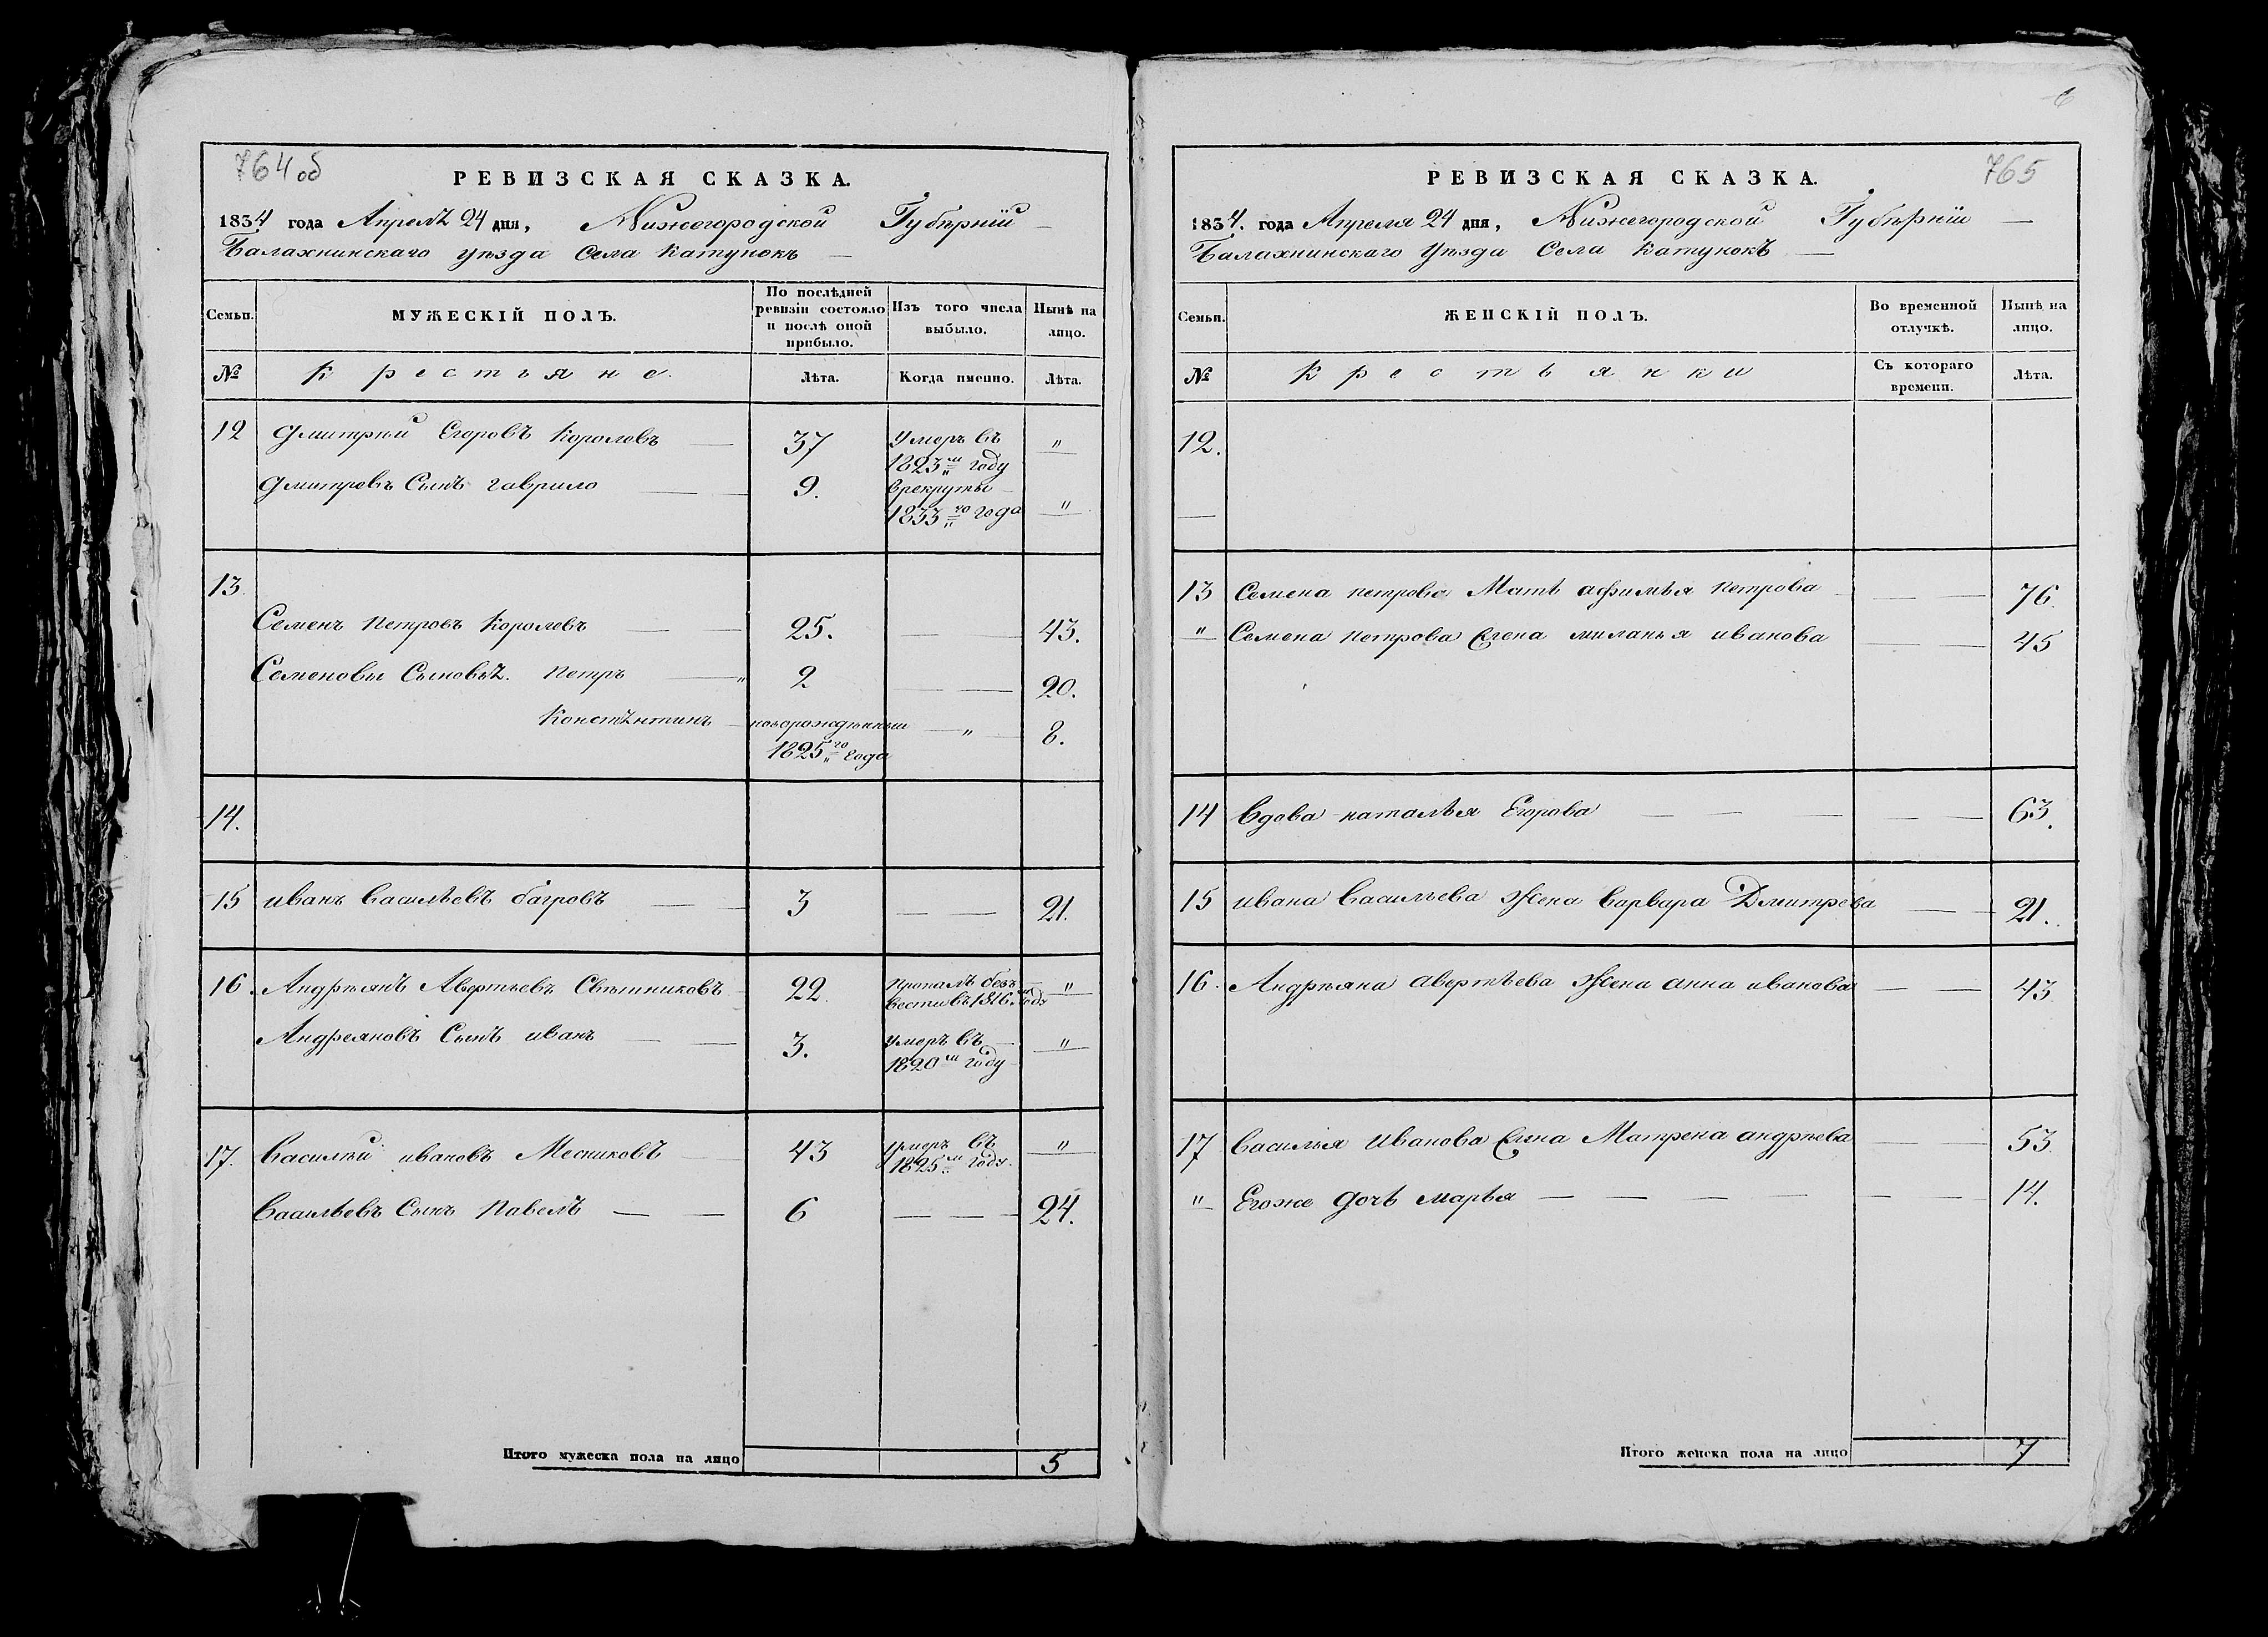 764 об
РЕВИЗСКАЯ СКАЗКА.
1834 года Апреля 24 дня, Нижегородской Губѣрнiи
Балахнинскаго уѣзда Села Катунокъ
Семьи.
МУЖЕСКIЙ ПОЛЪ.
По послѣдней ревизiи состояло и послѣ оной прибыло.
Изъ того числа выбыло.
Нынѣ на лицо.
№
Крестьяне
Лѣта.
Когда именно.
Лѣта.
12 Дмитрий Егоровъ Королевъ — 37 Умеръ въ 1823м году "
Дмитревъ Сынъ гаврило — 9. врекруты 1833го года "
13
Семенъ петровъ Королевъ — 25. — 43.
Семеновы Сыновья. петръ — 2 — 20.
Констянтинъ — новорожденный 1825го года — " — 8.
14.
15 иванъ Васильевъ багровъ — 3 — 21.
16. Андреянъ Авертьевъ Свѣшниковъ 22 пропалъ безъ вести въ 1816м году "
Андреяновъ Сынъ иванъ — 3. умеръ въ 1820м году "
17. Василий ивановъ Месниковъ — 43 умеръ въ 1825м году. "
Васильевъ Сынъ павелъ — 6 — 24.
Итого мужеска пола на лицо 5
6
765
РЕВИЗСКАЯ СКАЗКА.
1834. года Апреля 24 дня, Нижегородской Губѣрнiи —
Балахнинскаго Уѣзда Села Катунокъ —
Семьи.
ЖЕНСКIЙ ПОЛЪ.
Во временной отлучкѣ.
Нынѣ на лицо.
№
Крестьянки
Съ котораго времени.
Лѣта.
12.
—
13 Семена петрова Мать афимья петрова — 76.
" Семена петрова жена миланья иванова — 45
14 Вдова наталья Егорова — 63.
15 ивана Васильева Жена варвара Дмитрева — 21.
16. Андреяна авертьева Жена анна иванова — 43
17 Василья Иванова жена Матрена андрѣева — 53.
" Егоже дочь марья — 14.
Итого женска пола на лицо 7